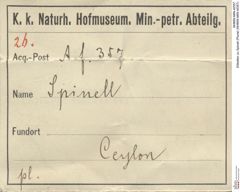 K. k. Naturh. Hofmuseum. Min.-petr. Abteilg.
26.
Acq.-Post A. f. 357
Name Spinell
Fundort
Ceylon
pl.